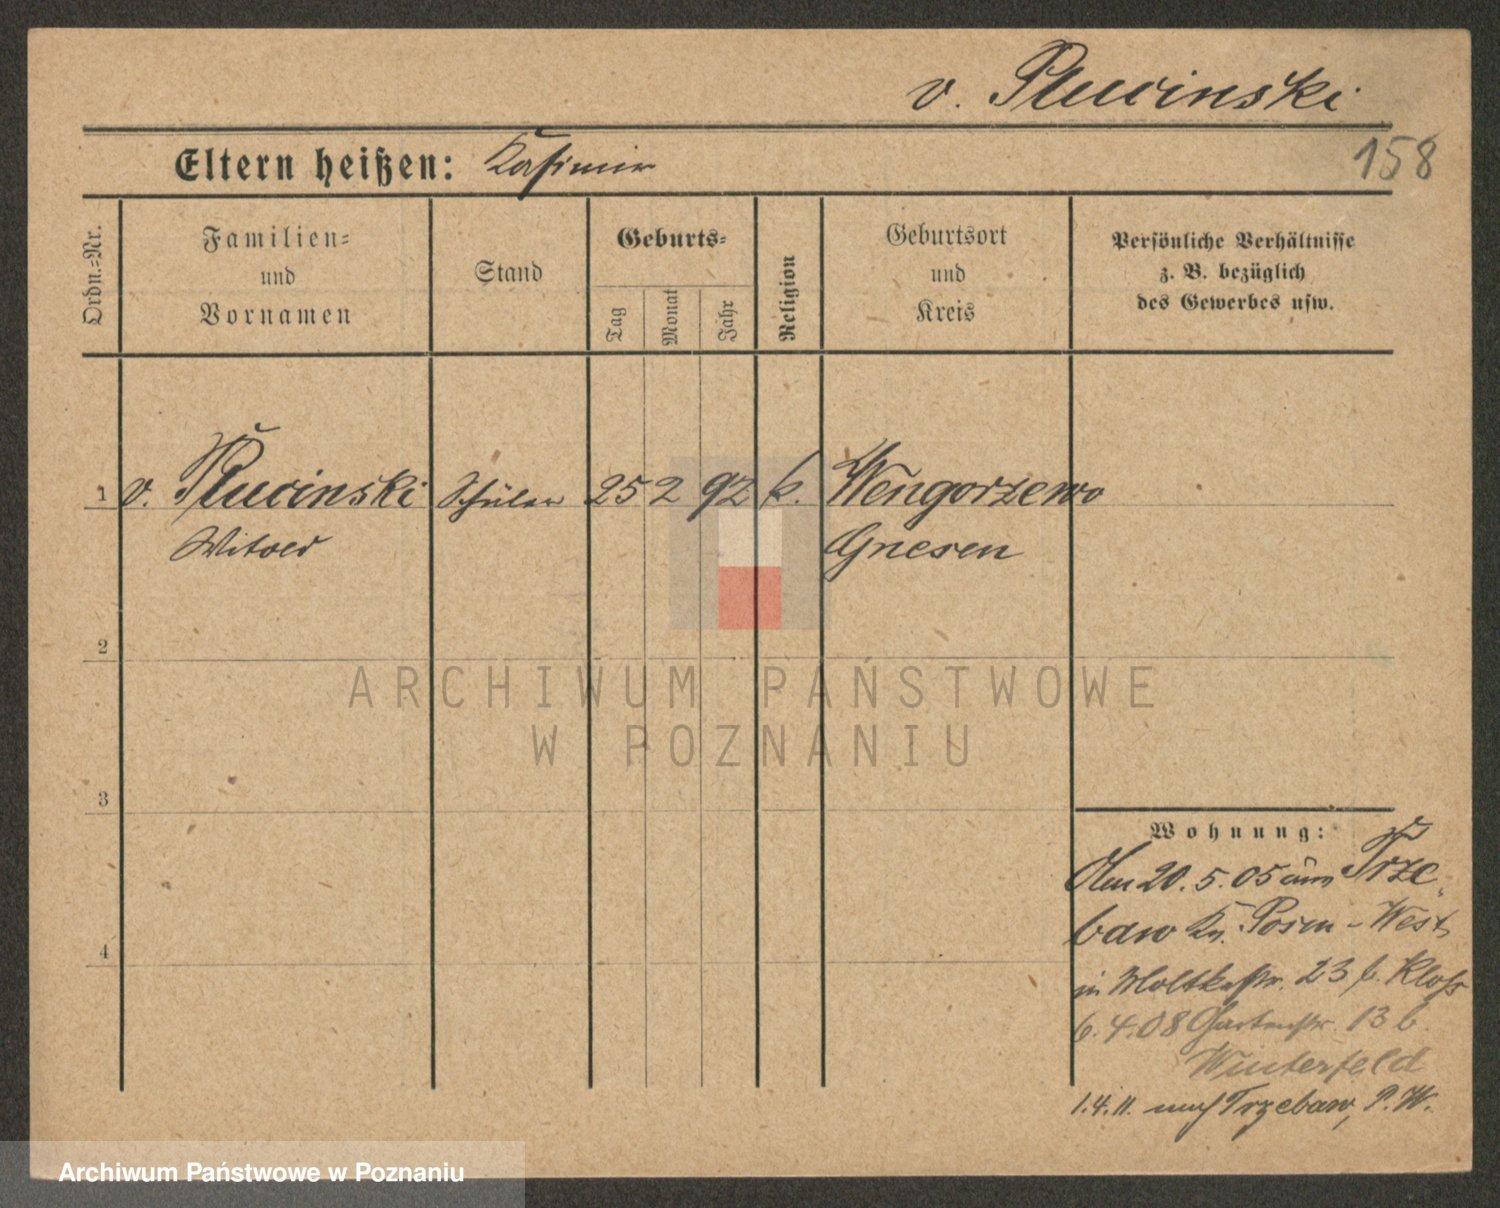 v. Plucinski
Eltern heißen: Kasimir
158
Ordn.=Nr.
Familien=
und
Vornamen
Stand
Geburts=
Tag
Monat
Jahr
Religion
Geburtsort
und
Kreis
Persönliche Verhältnisse
z. B. bezüglich
des Gewerbes usw.
1 v. Plucinski Schüler 25 2 92 k. Wengorzewo
Witold Gnesen
2
ARCHIWUM PAŃSTWOWE
W POZNANIU
3
Wohnung:
Am 20.5.05 aus Trze-
baw Kr. Posen-West
in Moltkestr. 23 b. Kloss
6.4.08 Gartenstr. 13 b.
Winterfeld
1.4.11. nach Trzebaw, P.W.
4
Archiwum Państwowe w Poznaniu